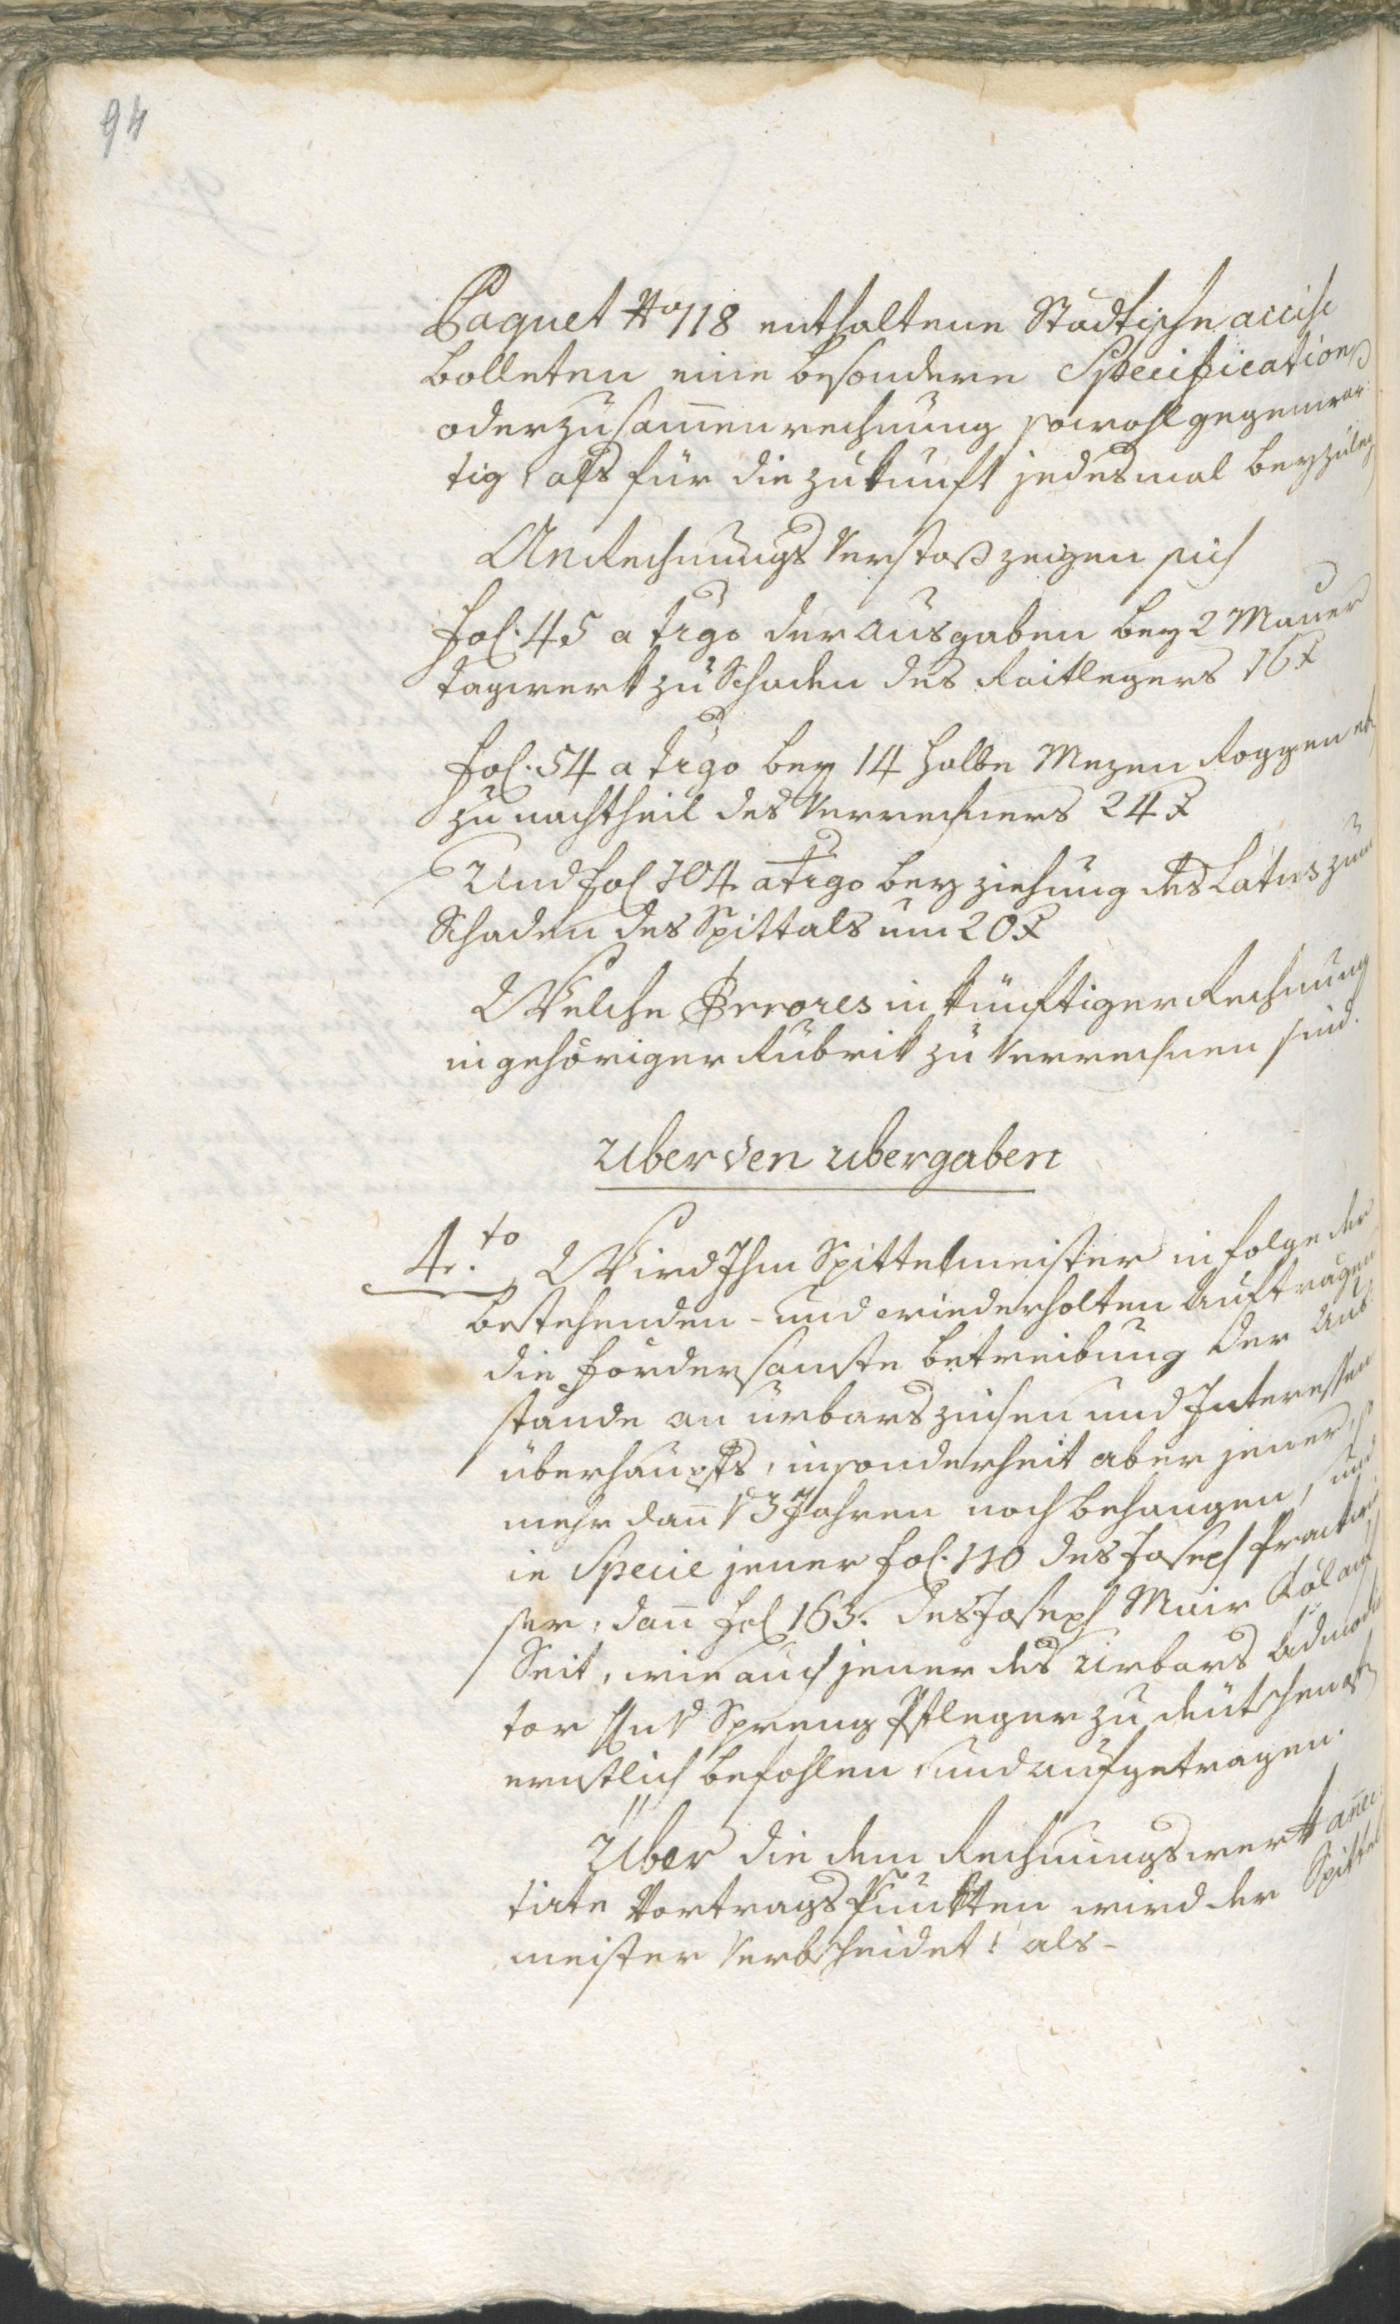 94
Paquet No 118 enthaltene Städtische accise
Bolleten eine besondere Specifications
oder zusam̄enrechnung sowohl gegenwär-
tig, als für die zukunft jedesmal beyzuleg
An Rechnungs Verstoß zeigen sich
fol. 45 a tergo der Ausgaben bey 2 Maurer
tagwerk zu Schaden des Raitlegers 16 x
fol. 54 a tergo bey 14 halbe Mezen Roggen
zu nachtheil des Verrechners 24 x
Und fol 104. a tergo bey ziehung des Latus zum
Schaden des Spittals um 20 x
Welche Errores in künftiger Rechnung
in gehöriger Rubrik zu verrechnen sind.
Uber den Ubergaben
4.to Wird Ihm Spittelmeister in folge der
bestehenden - und wiederholten Aufträgen
die fördersamste betreibung der Aus-
stände an urbars zinsen und Interessen
überhaupts, insonderheit aber jener
mehr dan̄ 3 Jahren noch behangen, und
in Specie jener fol. 110 des Joseph
ser, dan̄ fol 163. des Joseph Mair
Seit, wie auch jener des Urbars
tor Spreng Pfleger zu
ernstlich befohlen, und aufgetragen.
Über die dem Rechnungswerk an̄ec-
tirte Vortrags Punkten wird der Spittel
meister Verbscheidet: als-